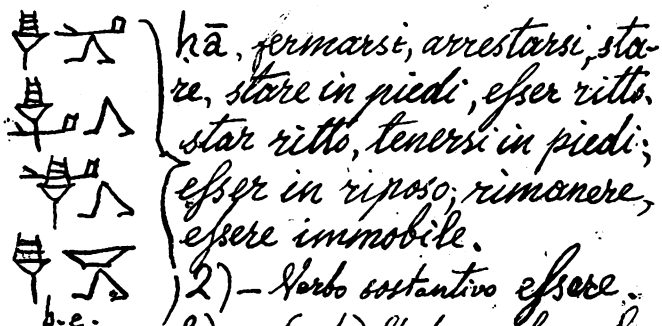 ḥā, fermarsi, arrestarsi, sta-
re, stare in piedi, esser ritto.
star ritto, tenersi in piedi;
esser in riposo; rimanere,
essere immobile.
2) — Verbo sostantivo essere.
b.e.